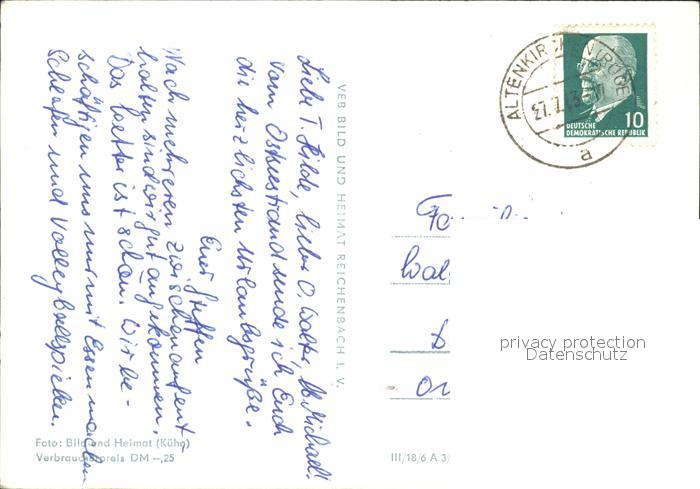 Liebe T. Hilde, lieber O. Walter, lb. Michael!
Vom Ostseestrand sende ich Euch
die herzlichsten Urlaubsgrüße.
Euer Steffen
Nach mehreren Zwischenaufent-
halten sind wir gut angekommen.
Das Wetter ist schön. Wir be-
schäftigen uns nur mit Essen machen
Schlafen und Volleyballspielen.
VEB BILD UND HEIMAT REICHENBACH I. V.
Foto: Bild und Heimat (Kühn)
Verbraucherpreis DM –,25
III/18/6 A 3/
ALTENKIRCHEN (RÜGEN)
27.7.
a
10
DEUTSCHE
DEMOKRATISCHE REPUBLIK
Wal
privacy protection
Datenschutz